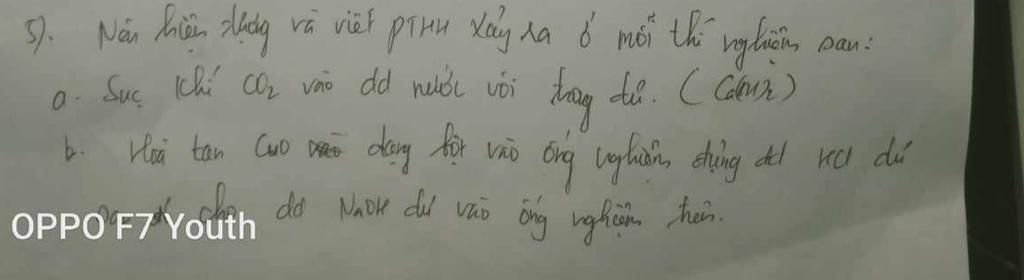 5). Nêu hiện tượng và viết PTHH xảy ra ở mỗi thí nghiệm sau:
a. Sục khí CO2 vào dd nước vôi trong dư. (Ca(OH)2)
b. Hoà tan CuO vào dạng bột vào ống nghiệm đựng dd HCl dư
cho dd NaOH dư vào ống nghiệm trên.
OPPO F7 Youth